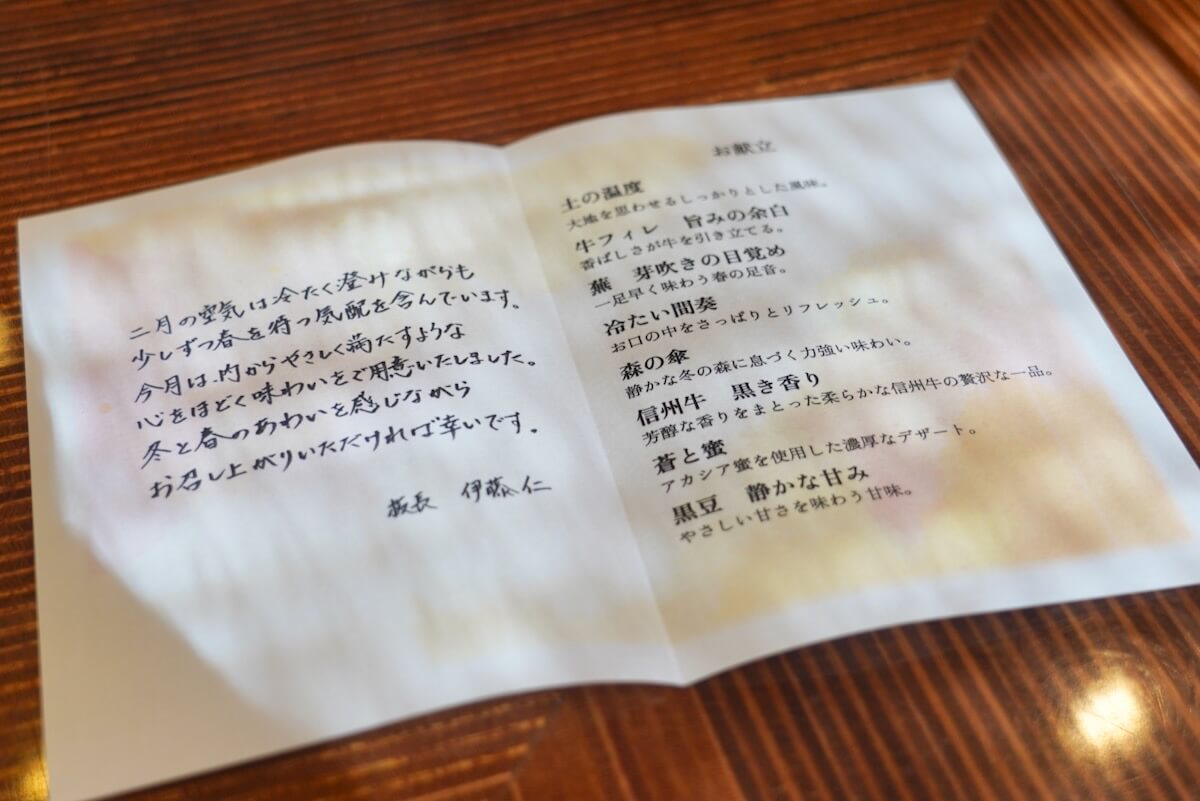 二月の空気は冷たく澄みながらも
少しずつ春を待つ気配を含んでいます。
今月は、内からやさしく満たすような
心をほどく味わいをご用意いたしました。
冬と春のあわいを感じながら
お召し上がりいただければ幸いです。
板長 伊藤 仁
お献立
土の温度
大地を思わせるしっかりとした風味。
牛フィレ 旨みの余白
香ばしさが牛を引き立てる。
蕪 芽吹きの目覚め
一足早く味わう春の足音。
冷たい間奏
お口の中をさっぱりとリフレッシュ。
森の傘
静かな冬の森に息づく力強い味わい。
信州牛 黒き香り
芳醇な香りをまとった柔らかな信州牛の贅沢な一品。
蒼と蜜
アカシア蜜を使用した濃厚なデザート。
黒豆 静かな甘み
やさしい甘さを味わう甘味。